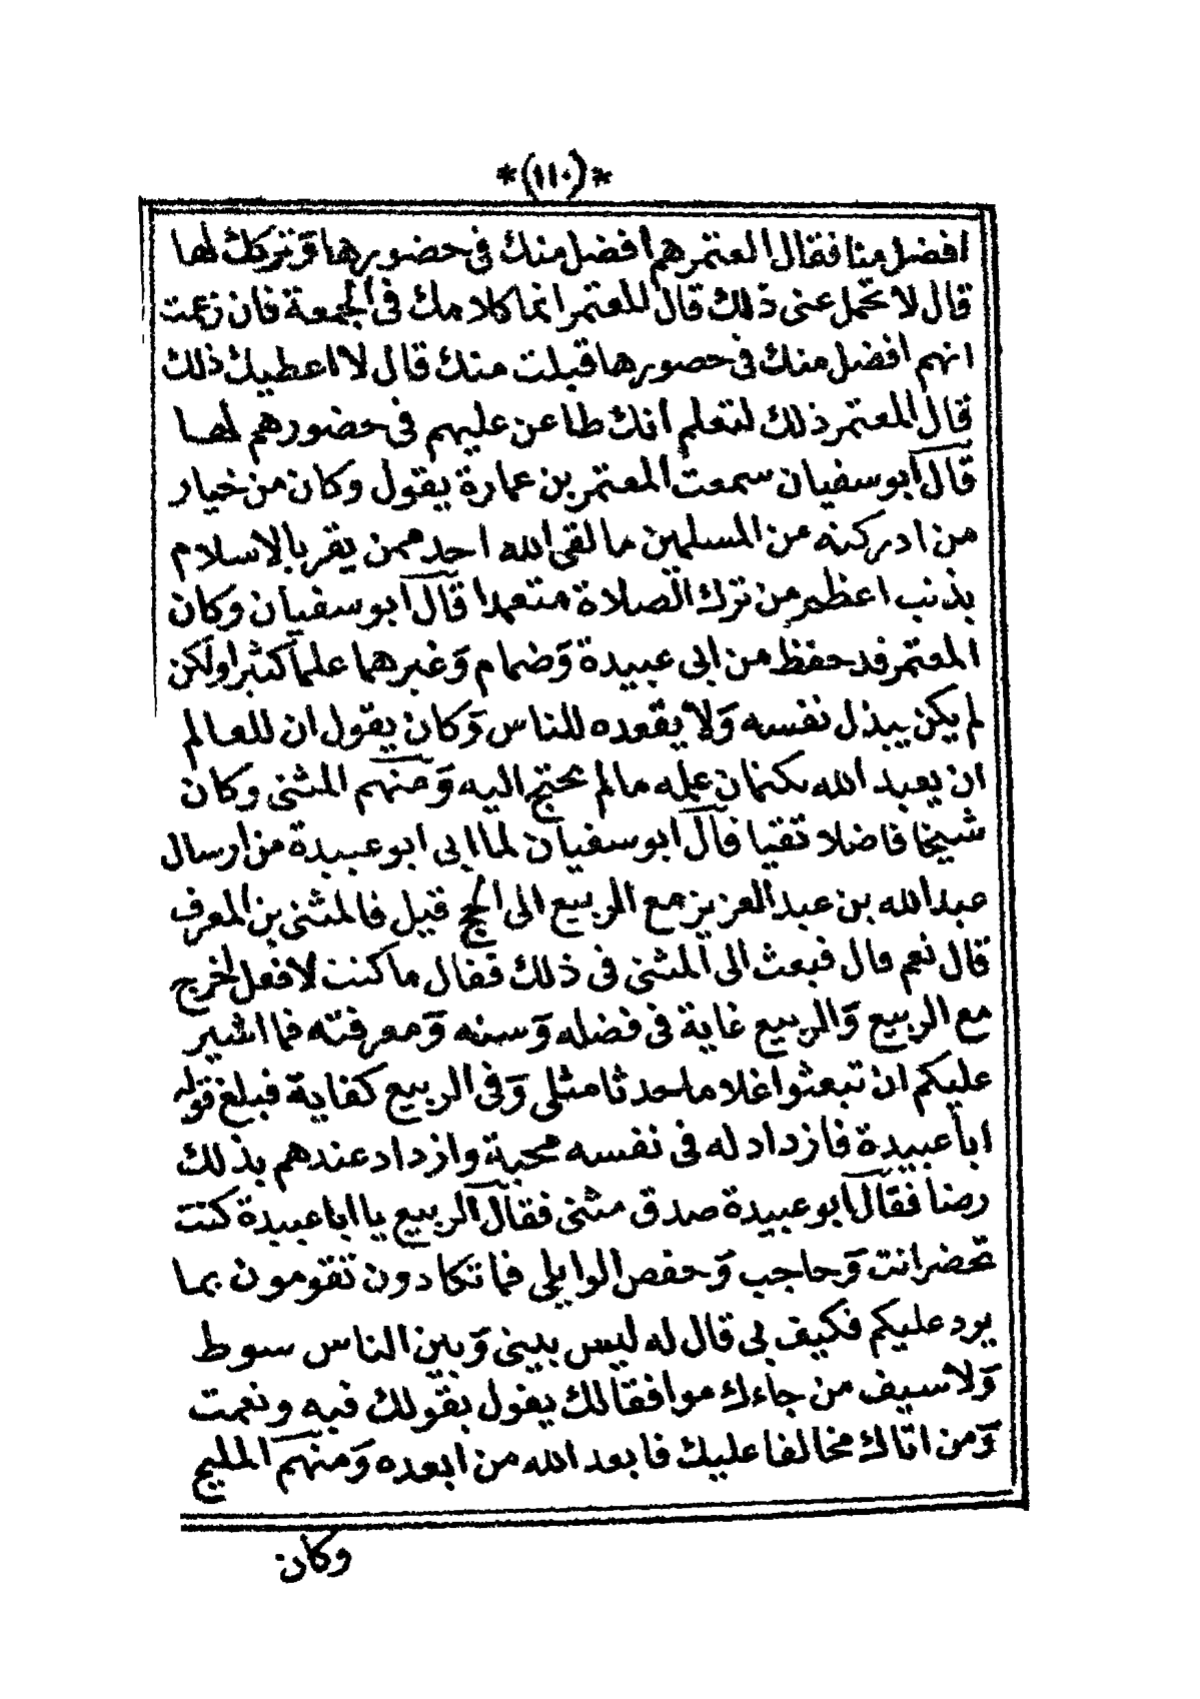 *(١١٠)*
افضل منا فقال المعتمر هم افضل منك في حضورها وتركك لها
قال لا تحمل عني ذلك قال المعتمر انما كلامك في الجمعة فان زعمت
انهم افضل منك في حضورها قبلت منك قال لا اعطيك ذلك
قال المعتمر ذلك لتعلم انك طاعن عليهم في حضورهم لها
قال ابو سفيان سمعت المعتمر بن عمارة يقول وكان من خيار
من ادركته من المسلمين ما لقي الله احد ممن يقر بالاسلام
بذنب اعظم من ترك الصلاة متعمدا قال ابو سفيان وكان
المعتمر قد حفظ من ابي عبيدة وضمام وغيرهما علما كثيرا ولكن
لم يكن يبذل نفسه ولا يقعده للناس وكان يقول ان للعالم
ان يعبد الله بكتمان علمه ما لم يحتج اليه ومنهم المثنى وكان
شيخا فاضلا تقيا قال ابو سفيان لما ابى ابو عبيدة من ارسال
عبد الله بن عبد العزيز مع الربيع الى الحج قيل فالمثنى بن المعرف
قال نعم قال فبعث الى المثنى في ذلك فقال ما كنت لافعل لخرج
مع الربيع والربيع غاية في فضله وسنه ومعرفته فما اشير
عليكم ان تبعثوا غلاما حدثا مثلي وفي الربيع كفاية فبلغ قوله
ابا عبيدة فازداد له في نفسه محبة وازداد عندهم بذلك
رضا فقال ابو عبيدة صدق مثنى فقال الربيع يا ابا عبيدة كنت
تحضر انت وحاجب وحفص الوايلي فما تكادون تقومون بما
يرد عليكم فكيف بي قال له ليس بيني وبين الناس سوط
ولا سيف من جاءك موافقا لك يقول بقولك فبه ونعمت
ومن اتاك مخالفا عليك فابعد الله من ابعده ومنهم المليح
وكان